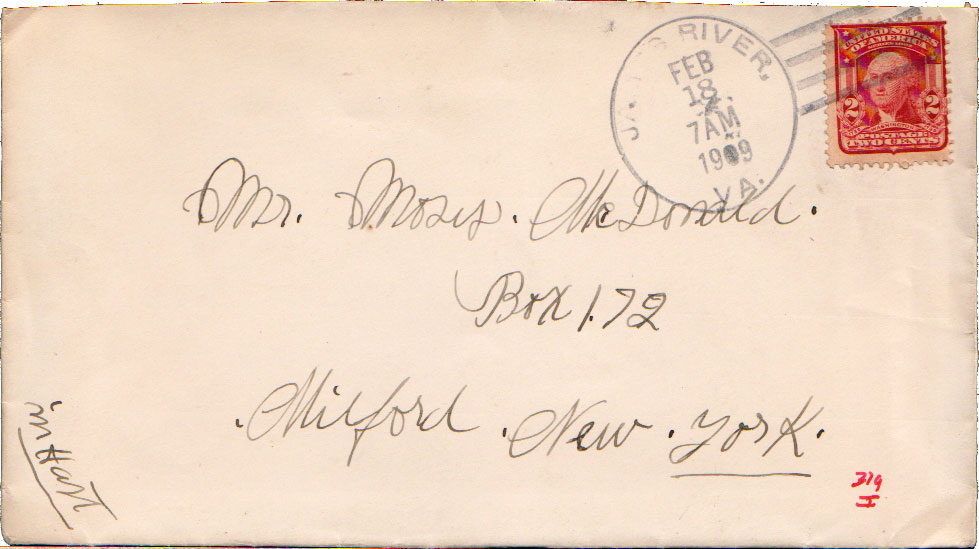 JAMES RIVER,
FEB
18
7AM
1909
VA.
UNITED STATES
OF AMERICA
2 2
WASHINGTON
POSTAGE
TWO CENTS
Mr. Moses. McDonald.
Box 172
.Milford .New .York.
in Hart
319
I